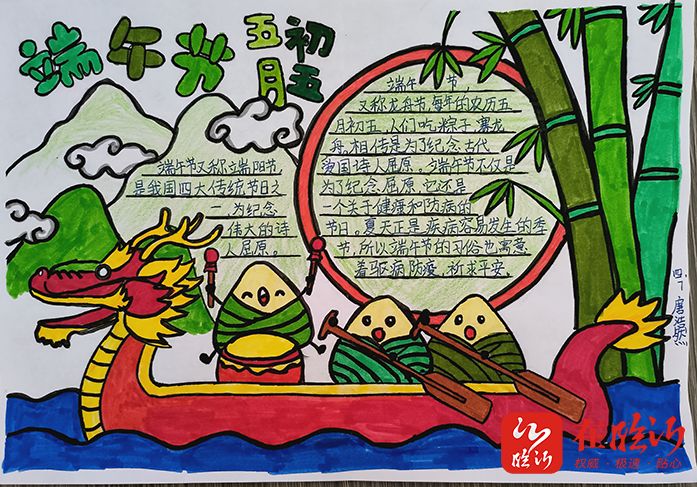 端午节
五月
初五
端午节又称端阳节,
是我国四大传统节日之
一,为纪念
伟大的诗
人屈原。
端午节,
又称龙舟节每年的农历五
月初五,人们吃粽子赛龙
舟,相传是为了纪念古代
爱国诗人屈原。端午节不仅是
为了纪念屈原,也还是
一个关于健康和防病的
节日。夏天正是疾病容易发生的季
节,所以端午节的习俗也寓意
着驱病防疫,祈求平安。
临沂
在临沂
权威·极速·贴心